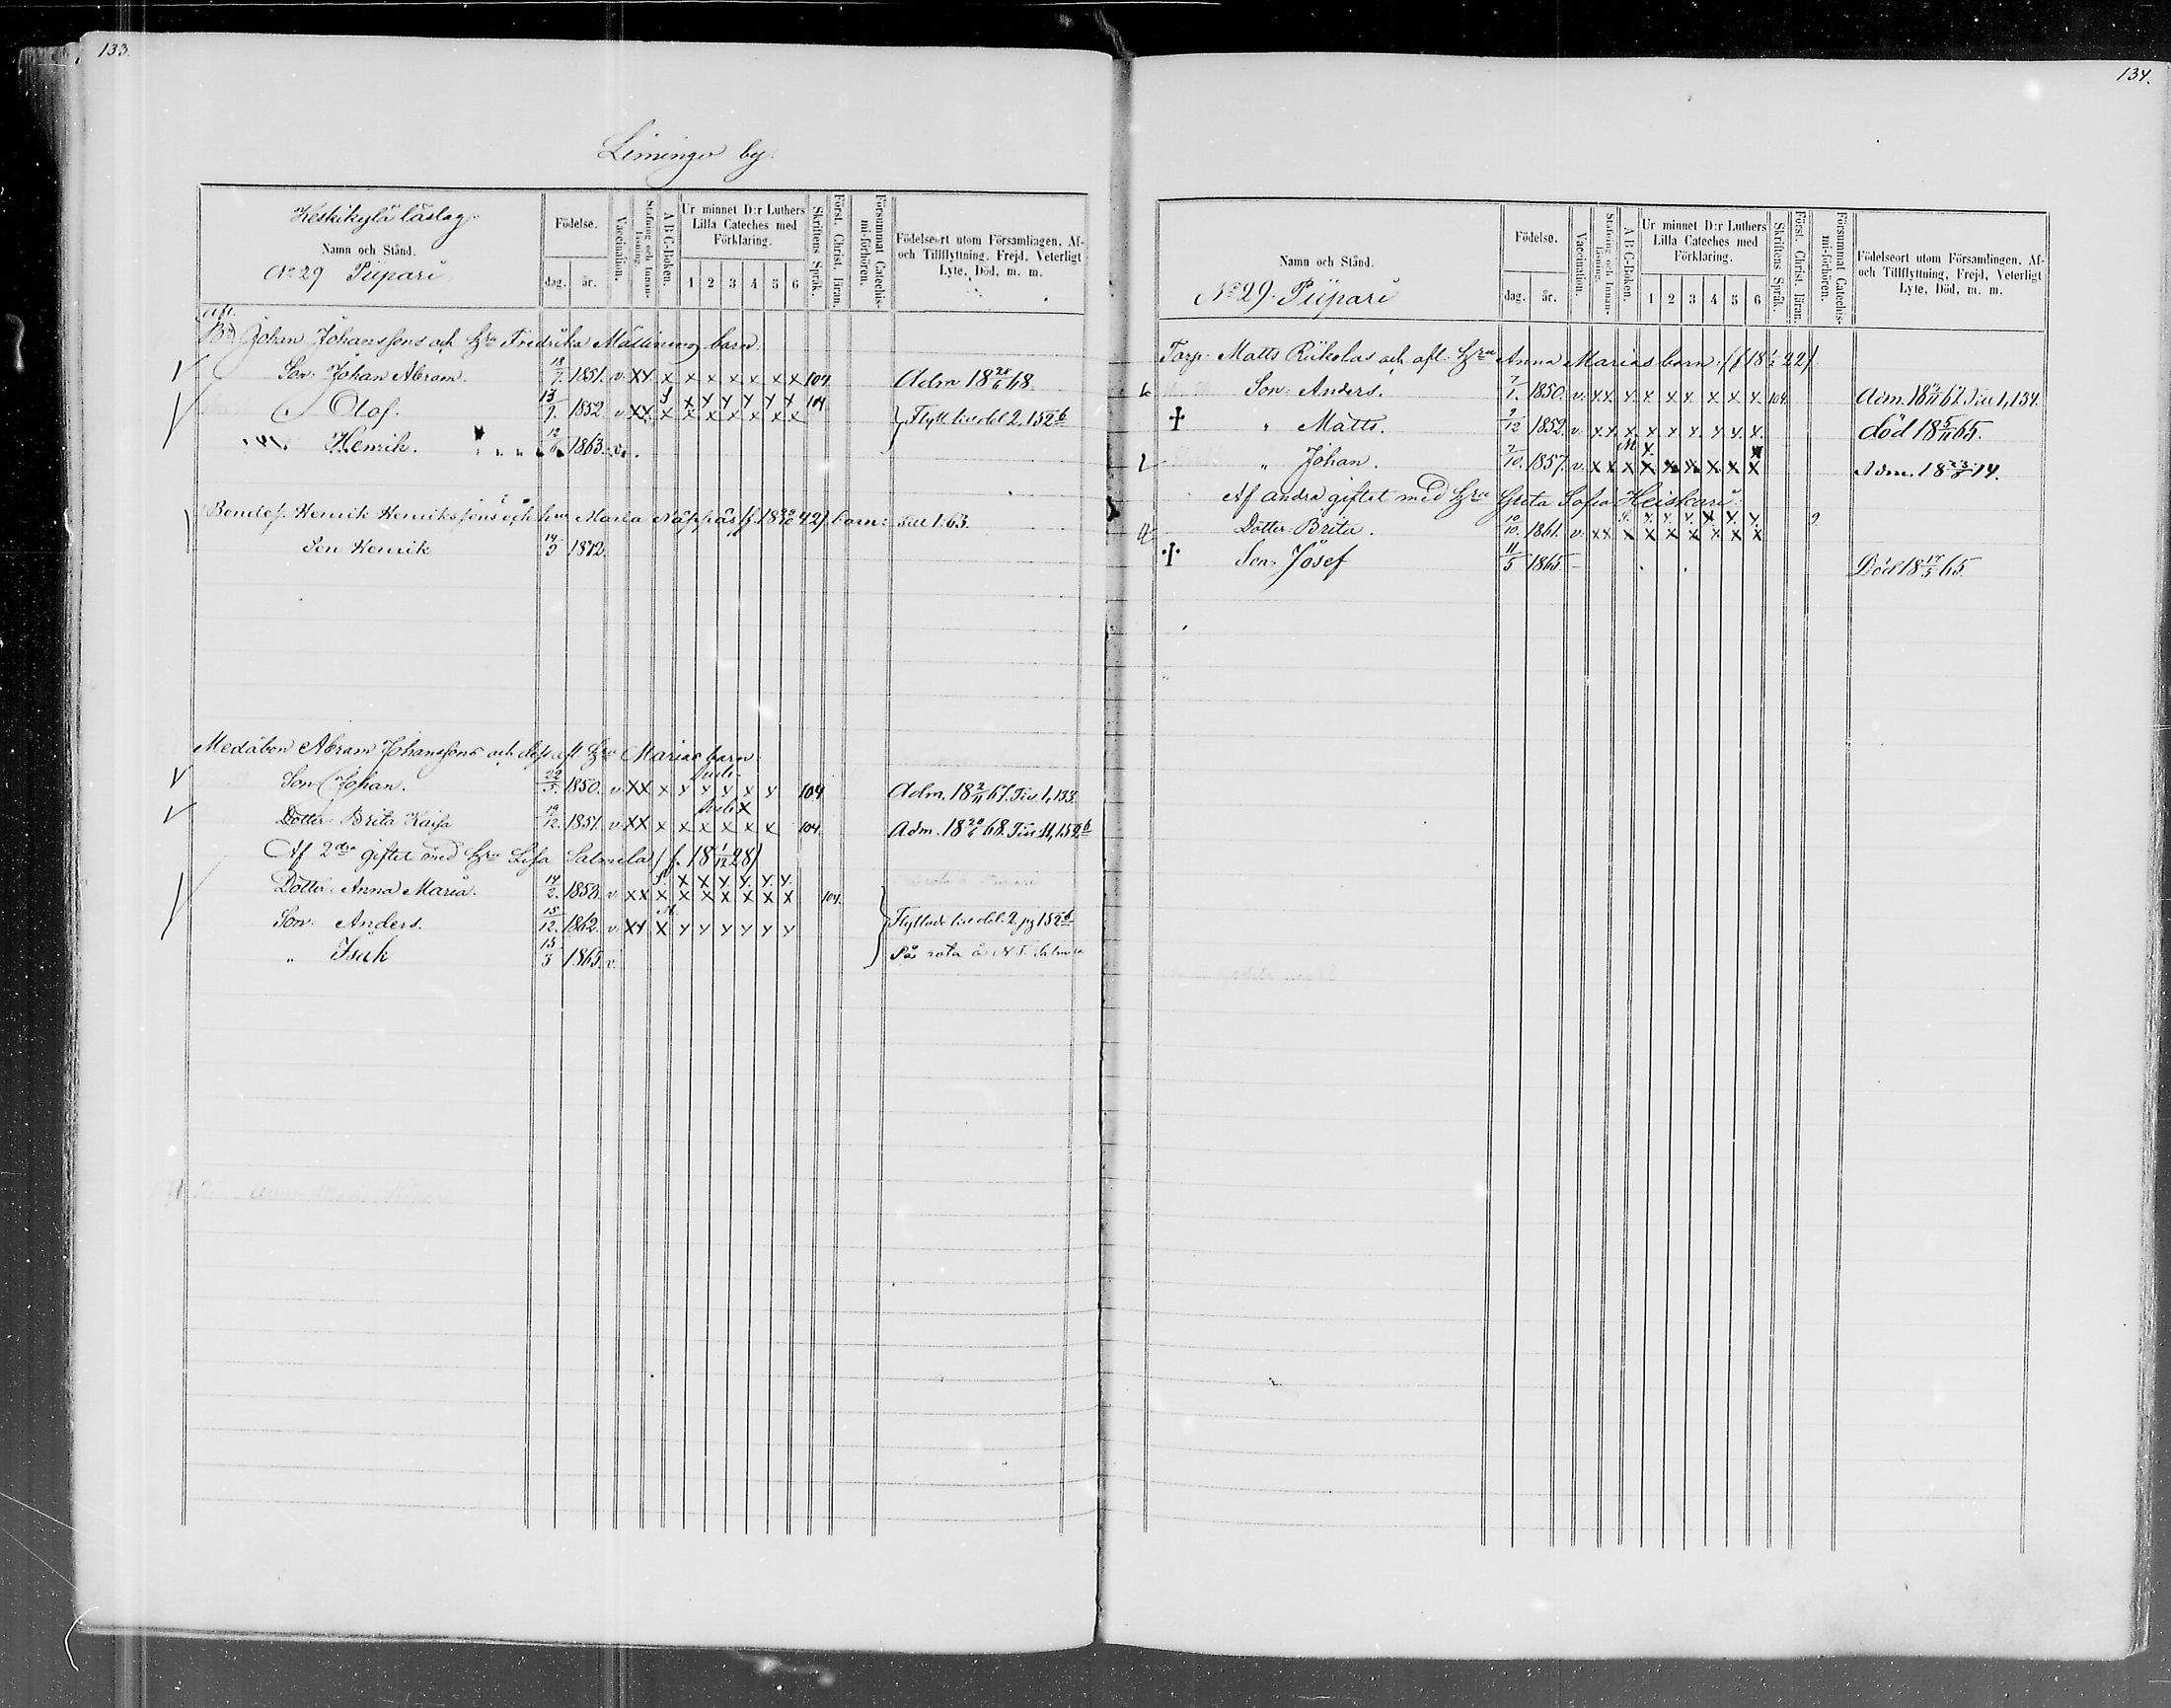 133.
Limingo by.
Keskikylä läslag.
Namn och Stånd.
No 29 Piipari
Födelse.
dag. år.
Vaccination.
Stafning och Innan-läsning.
A B C-Boken.
Ur minnet D:r Luthers Lilla Cateches med Förklaring.
1 2 3 4 5 6
Skriftens Språk.
Först. Christ. läran.
Försummat Catechis-mi-förhören.
Födelseort utom Församlingen, Af- och Tillflyttning, Frejd, Veterligt Lyte, Död, m. m.
afl.
Bd Johan Johanssons och Hru Fredrika Mällinens barn
Son: Johan Abram. 13/7. 1851. v. xx x x x x x x x 104 Adm. 18 28/6 68.
Olof. 13/9. 1852. v. xx x x x x x x x 104 Flytt till del 2, 152 b
Henrik. 12/6 1863. v.
Bondes. Henrik Henrikssons och hru Maria Näppäs (f. 18 30/10 42) barn: Till 1. 63.
Son Henrik 14/9 1872.
Medåbon Abram Johanssons och dess afl. Hru Marias barn.
Son Johan. 22/5. 1850. v. xx x x x x x x 104 Adm. 18 3/11 67. Till 1, 133.
Dotter Brita Kaisa 19/12. 1851. v. xx x x x x x x 104. Adm. 18 20/6 68. Till 11, 152 b
Af 2dra giftet med Hru Lisa Salmela (f. 18 1/12 28)
Dotter: Anna Maria. 14/2. 1858. v. xx x x x x x x x 104.
Son: Anders. 15/12. 1862. v. xx x x x x x x x Flyttade till del. 2. pg 152 b
" Isak 13/3 1865. v. På rota å N:o Salmela
134.
Namn och Stånd.
No 29. Piipari
Födelse.
dag. år.
Vaccination.
Stafning och Innan-läsning.
A B C-Boken.
Ur minnet D:r Luthers Lilla Cateches med Förklaring.
1 2 3 4 5 6
Skriftens Språk.
Först. Christ. läran.
Försummat Catechis-mi-förhören.
Födelseort utom Församlingen, Af- och Tillflyttning, Frejd, Veterligt Lyte, Död, m. m.
Torp. Matts Riikolas och afl. Hru Anna Marias barn: (f 18 1/2 22)
Son: Anders. 7/1. 1850. v. x x x x x x x x x 104 Adm. 18 3/11 67. Till 1, 134.
" Matts. 9/12 1852. v. x x x x x x x x x död 18 5/11 65.
" Johan. 7/10. 1857. v. x x x x x x x x x Adm. 18 23/5 74.
Af andra giftet med Hru Greta Sofia Heiskari.
Dotter Brita. 10/10. 1861. v. xx x x x x x x x 9
Son: Josef 11/5 1865 - Död 18 17/5 65.